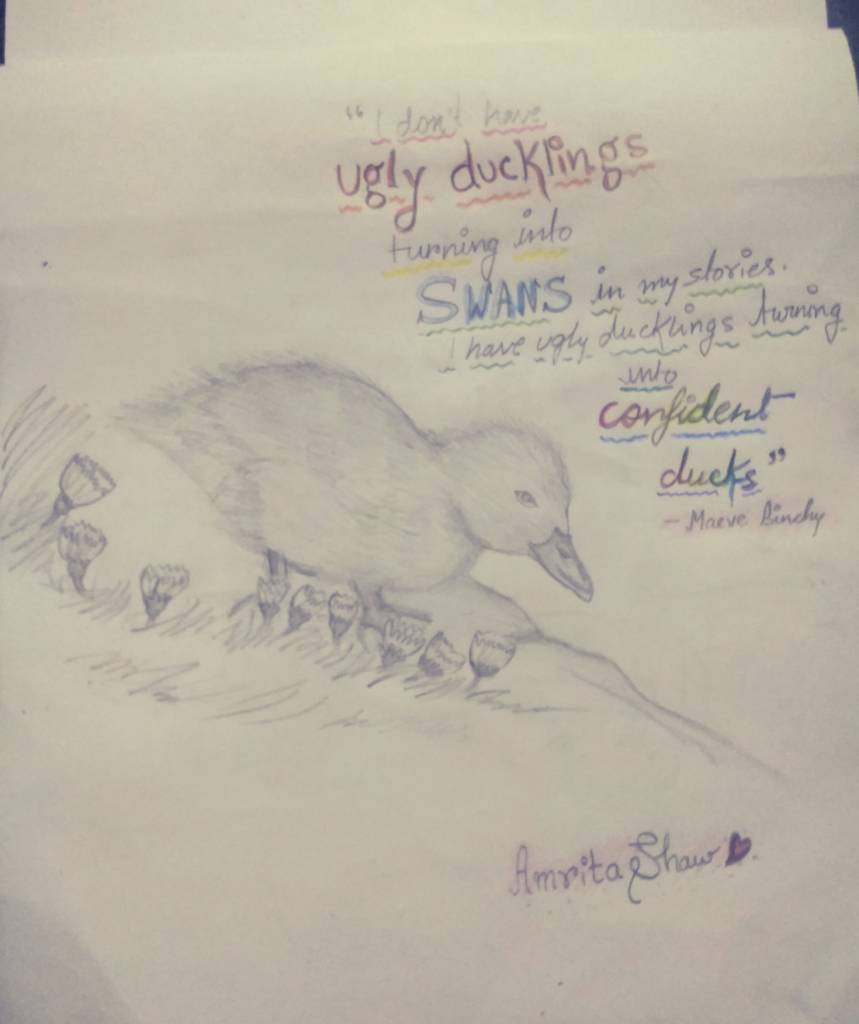 “I don't have
ugly ducklings
turning into
SWANS in my stories.
I have ugly ducklings turning
into
confident
ducks”
- Maeve Binchy
Amrita Shaw